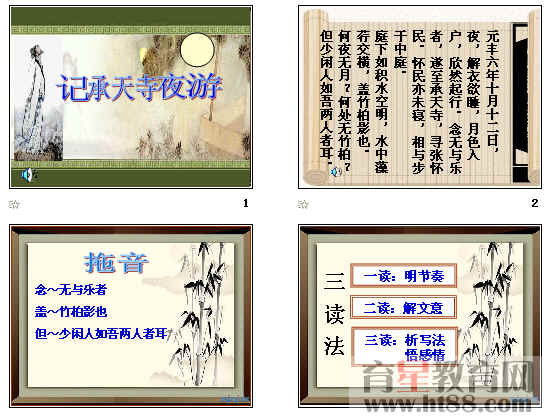 记承天寺夜游
1
元丰六年十月十二日，
夜，解衣欲睡，月色入
户，欣然起行。念无与乐
者，遂至承天寺，寻张怀
民。怀民亦未寝，相与步
于中庭。
庭下如积水空明，水中藻
荇交横，盖竹柏影也。
何夜无月？何处无竹柏？
但少闲人如吾两人者耳。
2
拖音
念～无与乐者
盖～竹柏影也
但～少闲人如吾两人者耳
三读法
一读：明节奏
二读：解文意
三读：析写法
悟感情
育星教育网
www.ht88.com